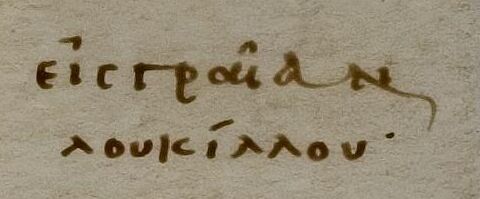 εἰς γραῖαν
λουκίλλου·